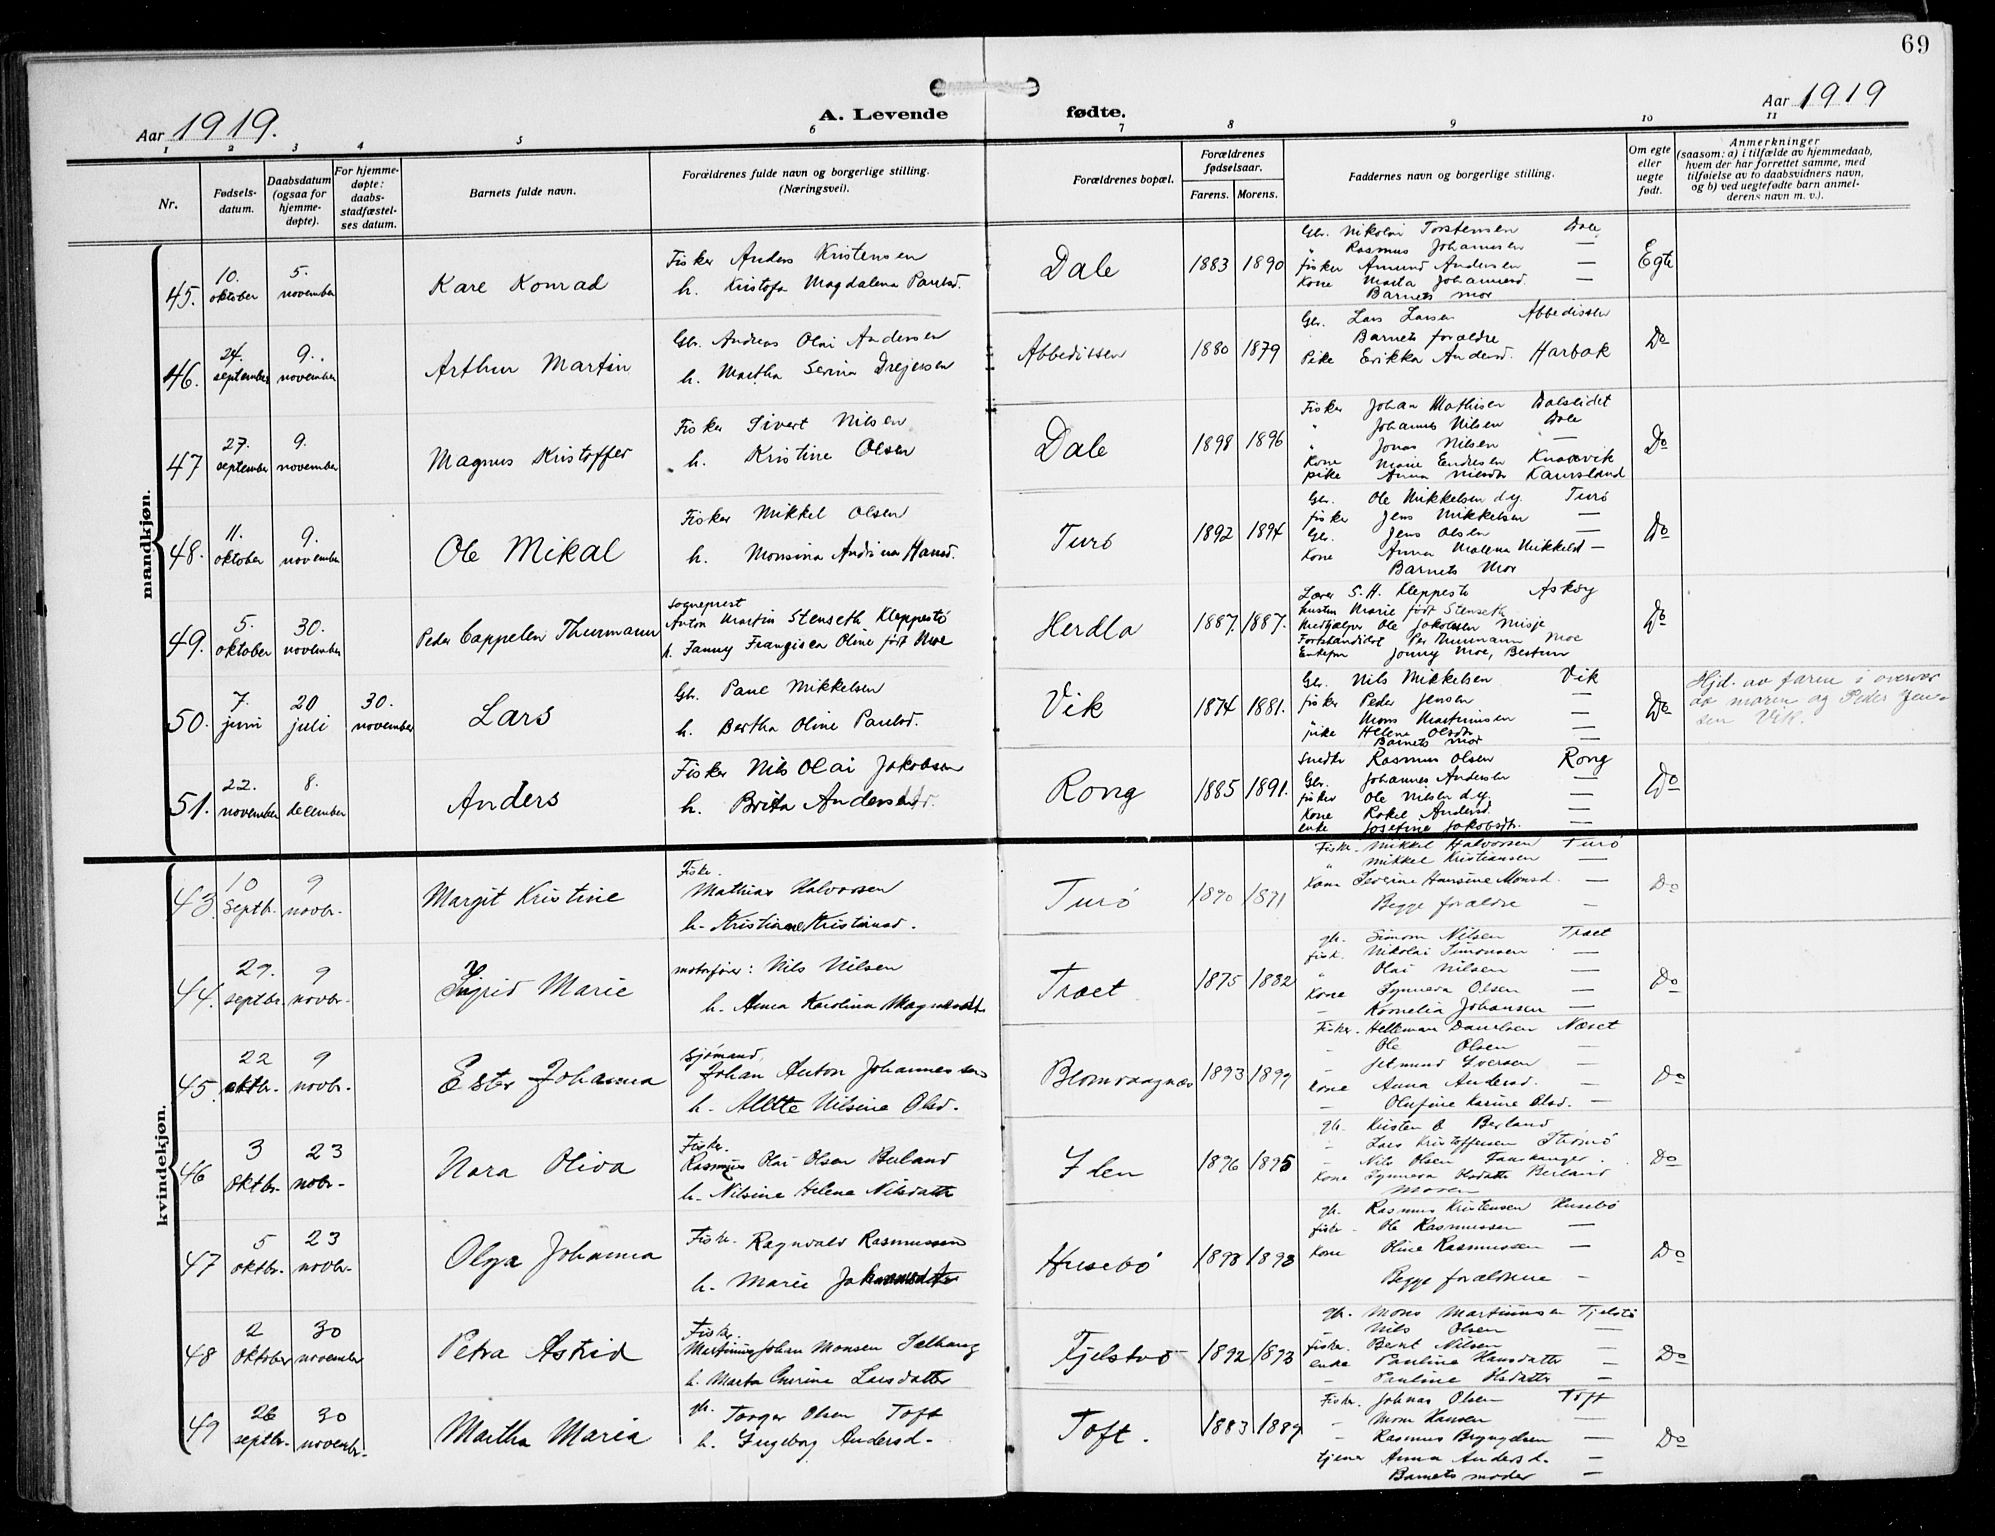 69
Aar 1919.
A. Levende fødte.
Aar 1919
1 2 3 4 5 6 7 8 9 10 11
Nr.
Fødsels-
datum.
Daabsdatum
(ogsaa for
hjemme-
døpte).
For hjemme-
døpte:
daabs-
stadfæstel-
ses datum.
Barnets fulde navn.
Forældrenes fulde navn og borgerlige stilling.
(Næringsvei).
Forældrenes bopæl.
Forældrenes
fødselsaar.
Farens. Morens.
Faddernes navn og borgerlige stilling.
Om egte
eller
uegte
født.
Anmerkninger
(saasom: a) i tilfælde av hjemmedaab,
hvem der har forrettet samme, med
tilføielse av to daabsvidners navn,
og b) ved uegtefødte barn anmel-
derens navn m. v.).
mandkjøn.
45. 10. oktober 5. november Kare Konrad
Fisker Anders Kristensen
h. Kristofa Magdalena Paulsd.
Dale 1883 1890
Gbr. Nikolai Torstensen Dale
" Rasmus Johannesen —
fisker Amund Andersen —
Kone Marta Johannesd. —
Barnets mor
Egte
46. 24. september 9. november Arthur Martin
Gbr. Andreas Olai Andersen
h. Martha Serina Drejersen
Abbedissen 1880 1879
Gbr. Lars Larsen Abbedissen
Barnets forældre
Pike Erikka Andersd. Harbak
Do
47 27. september 9. november Magnus Kristoffer
Fisker Sivert Nilsen
h. Kristine Olsen
Dale 1898 1896
Fisker Johan Mathisen Dalslidet
" Johannes Nilsen Dale
" Jonas Nilsen —
Kone Marie Endresen Knarvik
pike Anna Nilsdtr Kaursland
Do
48. 11. oktober 9. november Ole Mikal
Fisker Mikkel Olsen
h. Monsina Andrina Hansd.
Turö 1892 1894
Gbr. Ole Mikkelsen d.y. Turö
fisker Jens Mikkelsen —
Gbr. Jens Olsen —
Kone Anna Malena Mikkelsd —
Barnets Mor
Do
49. 5. oktober 30. november Peder Cappelen Thurmann
Sogneprest
Anton Martin Stenseth Kleppestö
h. Fanny Francisca Oline født Moe
Herdla 1887. 1887.
Lærer S. H. Kleppestö Askøy
hustru Marie født Stenseth
Medhjelper Ole Jakobsen Misje
Per Thurmann Moe
Jonny Moe, Bestum
Do
50. 7. juni 20 juli 30. november Lars
Gbr. Paul Mikkelsen
h. Bertha Oline Paulsd.
Vik 1874 1881.
Gbr. Nils Mikkelsen Vik
fisker Peder Jensen —
" Mons Martinussen —
pike Helene Olsdtr —
Barnets mor —
Do
Hjd. av faren i overvær
av moren og Peder Jen-
sen Vik.
51. 22. november 8. december Anders
Fisker Nils Olai Jakobsen
h. Brita Andersdtr.
Rong 1885 1891.
Snedker Rasmus Olsen Rong
Gbr. Johannes Andersen —
fisker Ole Nilsen d.y. —
Kone Rakel Andersd. —
enke Josefine Jakobsdtr. —
Do
kvindekjøn.
43. 10 Septbr. 9 novbr. Margit Kristine
Fisker.
Mathias Halvorsen
h. Kristiane Kristiansd.
Turö 1890 1891
Fisker. Mikkel Halvorsen Turö
" Mikkel Kristiansen —
Kone Severine Hansine Monsd. —
Begge forældre —
Do
44. 29. septbr. 9 novbr. Ingrid Marie
motorfører: Nils Nilsen
h. Anna Karolina Magnusdtr
Træet 1875 1882
gbr. Simon Nilsen Træet
fisk. Nikolai Simonsen —
" Olai Nilsen —
Kone Synneva Olsen —
- Kornelia Johansen —
Do
45. 22 oktbr. 9 novbr. Ester Johanna
Sjømand,
Johan Anton Johannessen
h. Alette Nilsine Olsd.
Blomvaagnæs 1893 1899
Fisker. Helleman Danielsen Næset
- Ole Olsen —
- Selmund Iversen —
Kone Anna Andersd. —
- Olufine Karine Olsd. —
Do
46 3 Oktbr. 23 nobr. Nora Oliva
Fisker.
Rasmus Olai Olsen Berland
h. Nilsine Helene Nilsdatter
Ilen 1896 1895
gbr. Kristen O Berland
- Lars Kristoffersen Strømö
- Nils Olsen Fauskanger.
Kone Synneva Olsdatter Berland
Moren
Do
47 5 oktbr. 23 novbr. Olga Johanna
Fisker. Ragnvald Rasmussen
h. Marie Johannesdatter
Husebö 1898 1893
gbr. Rasmus Kristensen Husebö
fiskr. Ole Rasmussen —
Kone Oline Rasmussen —
Begge forældrene —
Do
48 2 Oktober 30 november Petra Astrid
Fisker.
Martinus Johan Monsen Solhaug
h. Marta Larsdatter
Fjelstö 1892 1893
gbr. Mons Martinussen Fjelstö
- Nils Olsen —
fiskr. Bernt Nilsen —
enke Pauline Hansdatter —
- Pauline Olsdatter —
Do
49 26 septbr. 30 novembr. Martha Maria
gbr. Torger Olsen Toft
h. Ingeborg Andersd.
Toft. 1883 1889
Fisker. Johnas Olsen Toft
- Mons Hansen —
- Rasmus Brynjelsen —
tjener Anna Andersd. —
Barnets moder —
Do